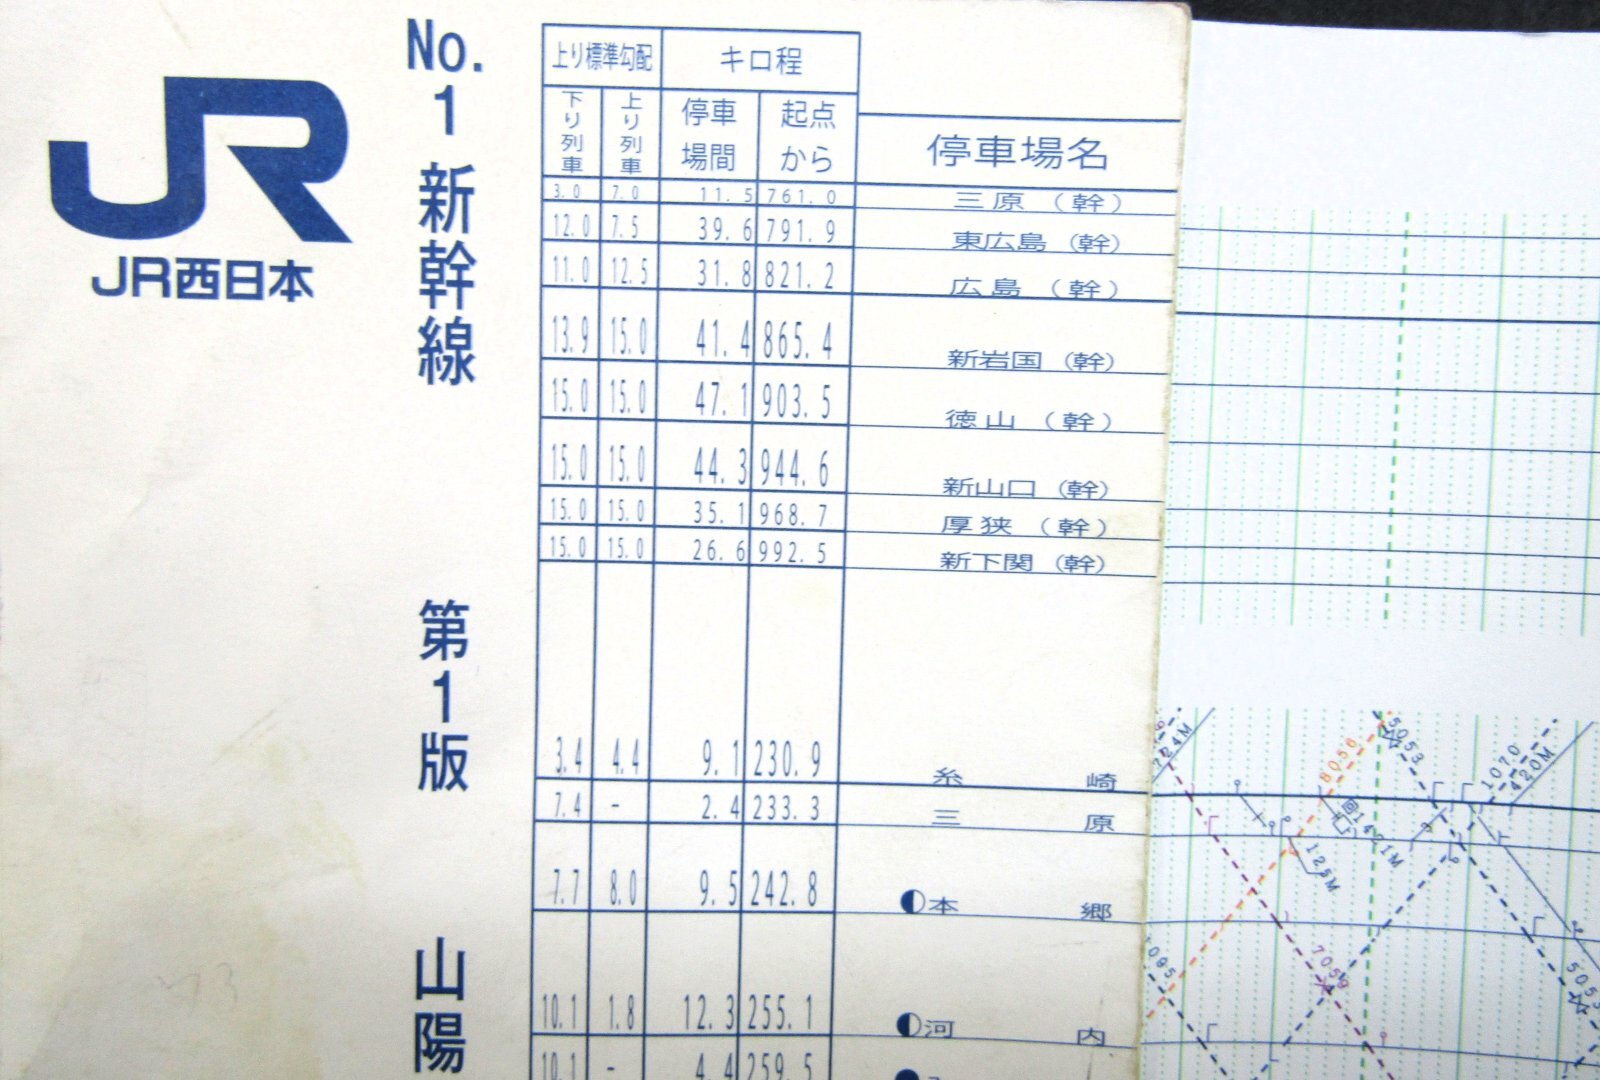 JR
JR西日本
No.1 新幹線 第1版 山陽
上り標準勾配 キロ程
下り列車 上り列車 停車場間 起点から 停車場名
3.0 7.0 11.5 761.0 三原(幹)
12.0 7.5 39.6 791.9 東広島(幹)
11.0 12.5 31.8 821.2 広島(幹)
13.9 15.0 41.4 865.4 新岩国(幹)
15.0 15.0 47.1 903.5 徳山(幹)
15.0 15.0 44.3 944.6 新山口(幹)
15.0 15.0 35.1 968.7 厚狭(幹)
15.0 15.0 26.6 992.5 新下関(幹)
3.4 4.4 9.1 230.9 糸崎
7.4 - 2.4 233.3 三原
7.7 8.0 9.5 242.8 本郷
10.1 1.8 12.3 255.1 河内
10.1 - 4.4 259.5
724M
8056
5053
1070
420M
回1421M
125M
7059
1095
505